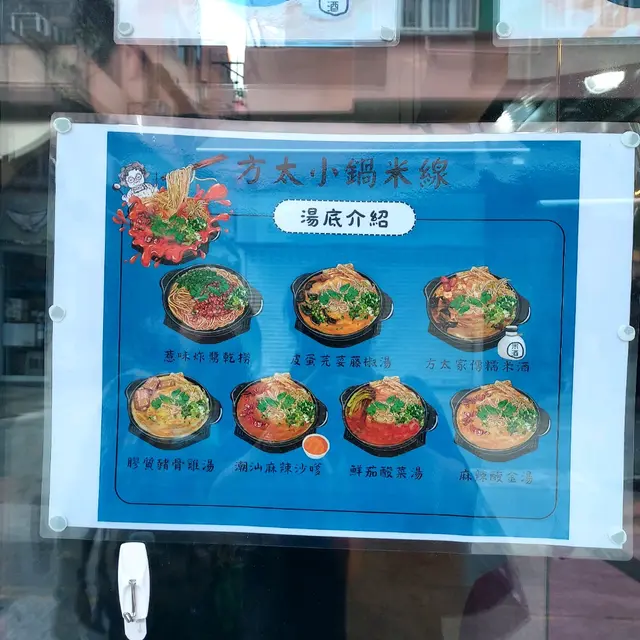 方太小鍋米線
湯底介紹
意味炸醬乾撈
皮蛋芫荽藤椒湯
方太家傳糯米酒
膠質豬骨雞湯
潮汕麻辣沙嗲
鮮茄酸菜湯
麻辣酸金湯